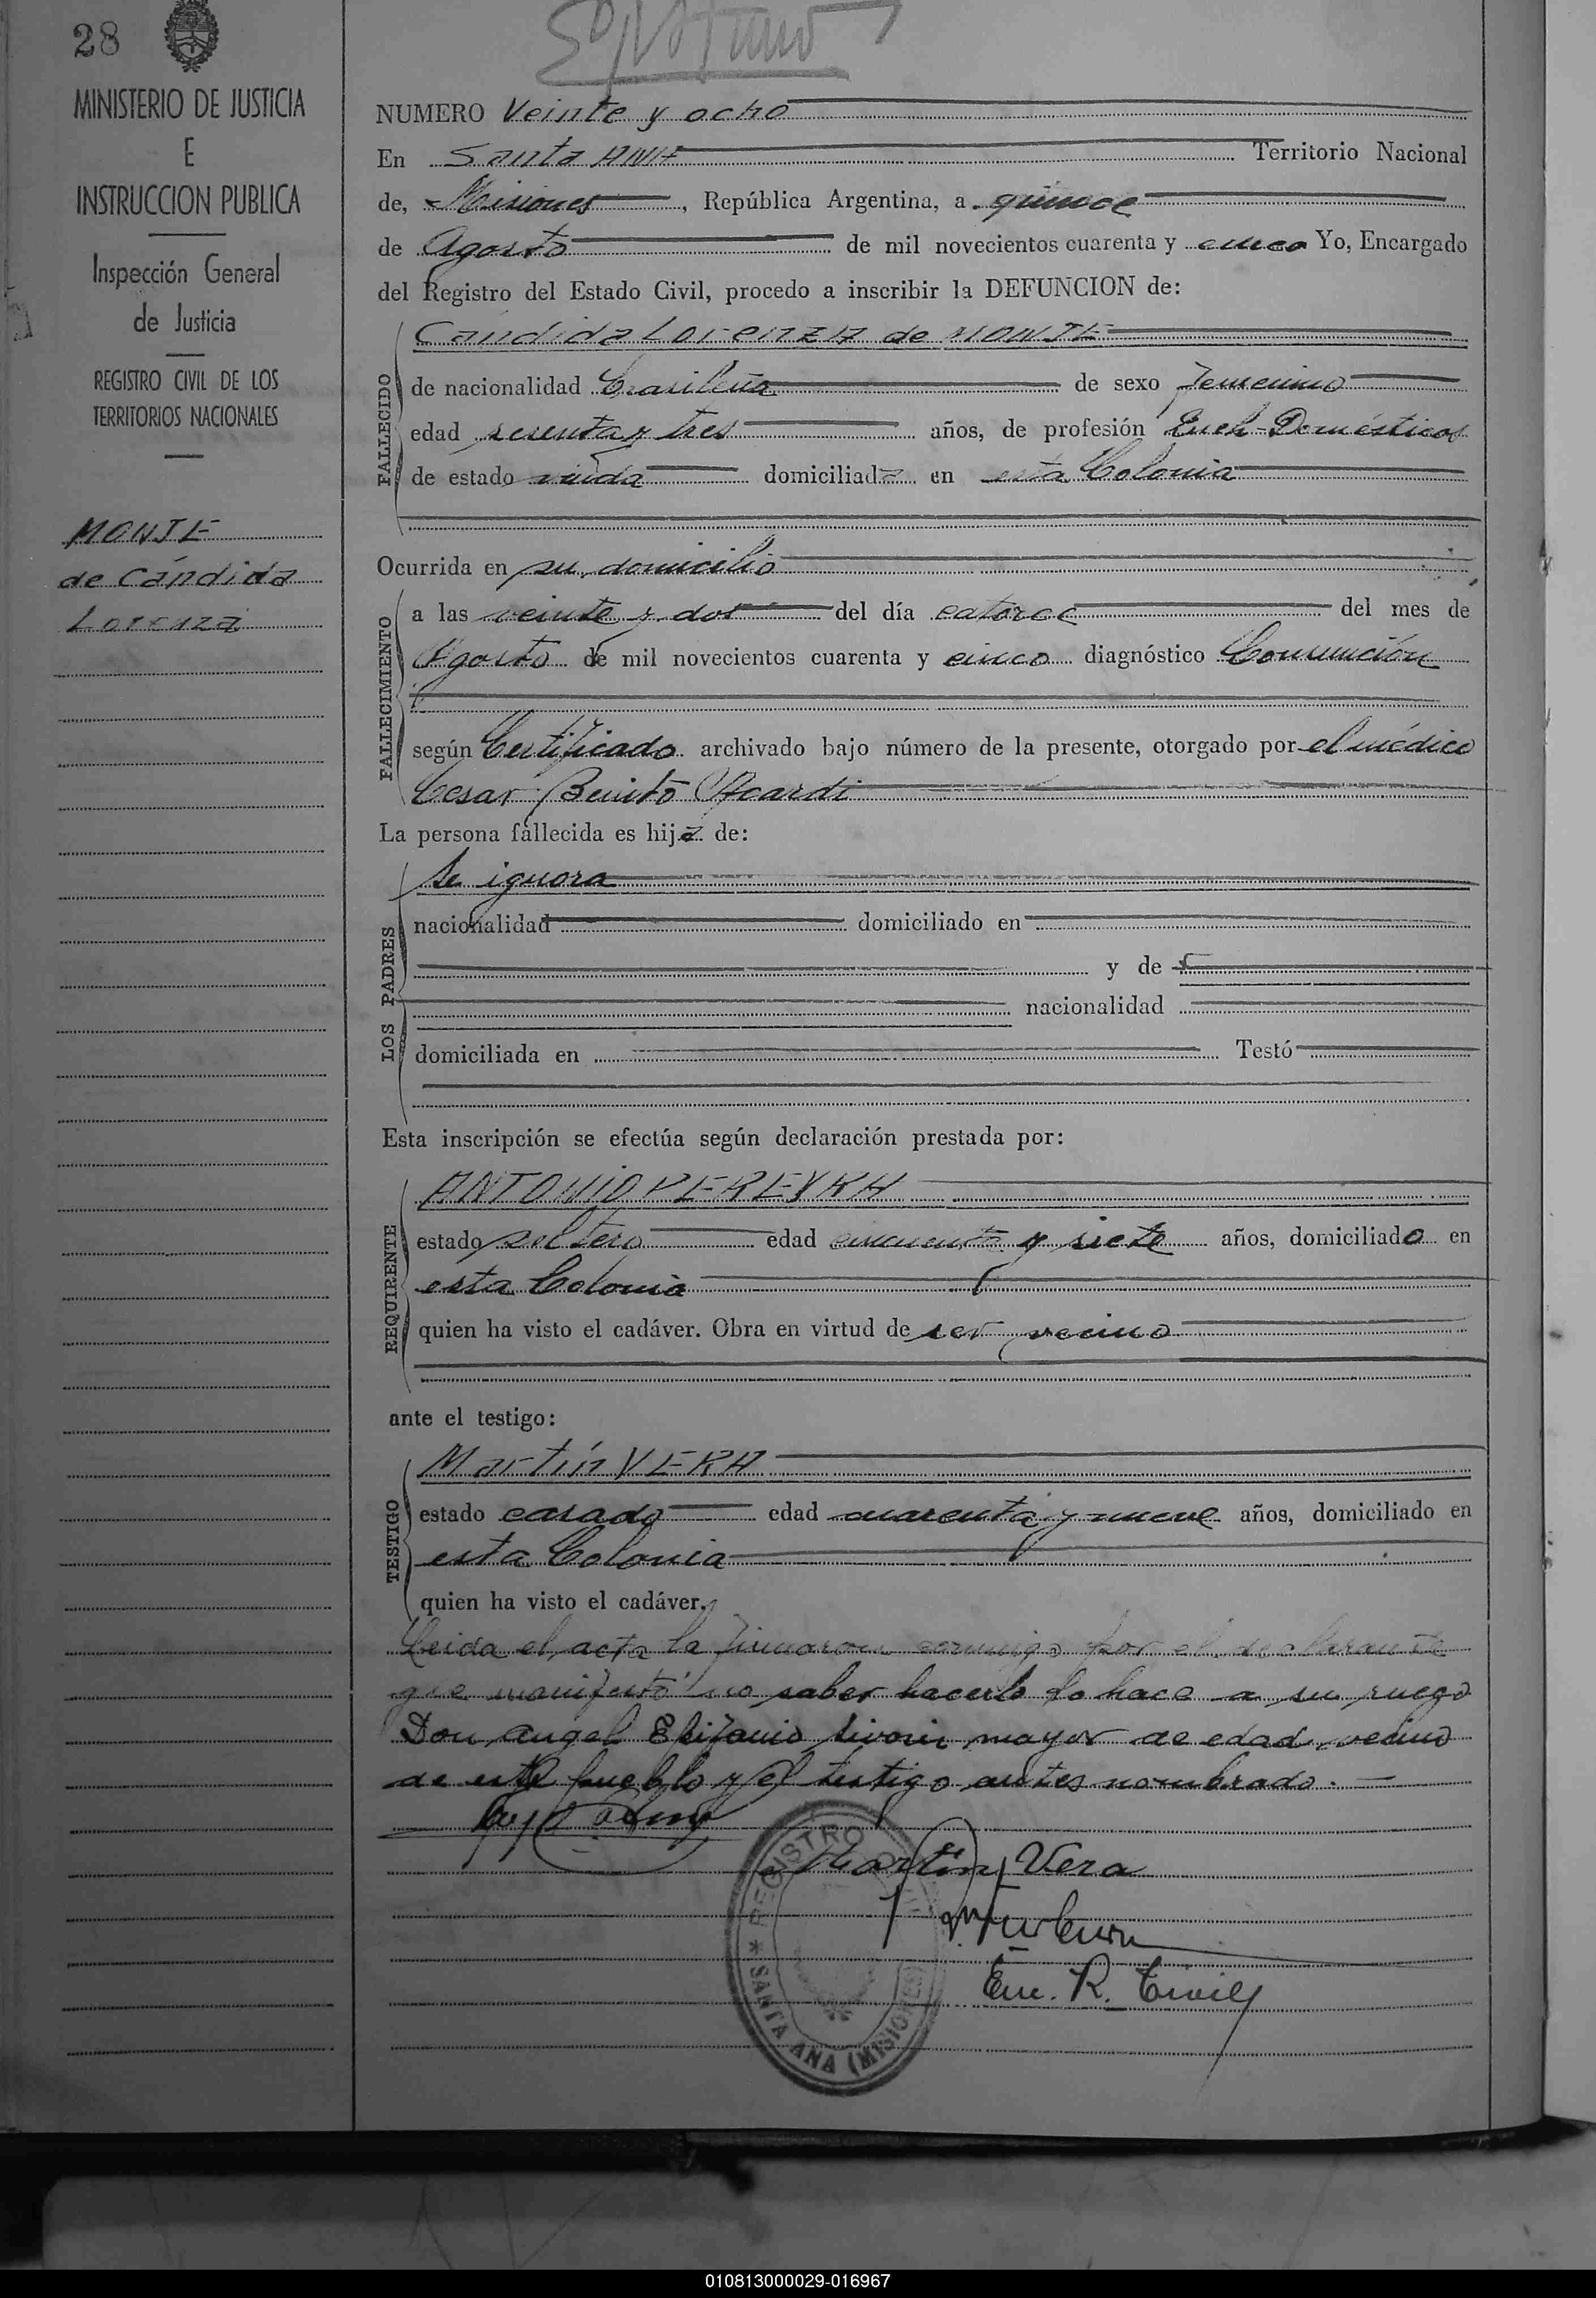 28
MINISTERIO DE JUSTICIA
E
INSTRUCCION PUBLICA
Inspección General
de Justicia
REGISTRO CIVIL DE LOS
TERRITORIOS NACIONALES
MONJE
de Cándida
Lorenza
NUMERO Veinte y ocho
En Santa ANA Territorio Nacional
de, Misiones, República Argentina, a quince
de Agosto de mil novecientos cuarenta y cinco Yo, Encargado
del Registro del Estado Civil, procedo a inscribir la DEFUNCION de:
FALLECIDO
Cándida Lorenza de MONJE
de nacionalidad brasileña de sexo femenino
edad sesenta y tres años, de profesión Domésticos
de estado viuda domiciliada en esta Colonia
Ocurrida en su domicilio
FALLECIMIENTO
a las veinte y dos del día catorce del mes de
Agosto de mil novecientos cuarenta y cinco diagnóstico Consunción
según Certificado archivado bajo número de la presente, otorgado por el médico
Cesar Benito Acardi
La persona fallecida es hija de:
LOS PADRES
Se ignora
nacionalidad domiciliado en
y de
nacionalidad
domiciliada en Testó
Esta inscripción se efectúa según declaración prestada por:
REQUIRENTE
ANTONIO PEREYRA
estado soltero edad cincuenta y siete años, domiciliado en
esta Colonia
quien ha visto el cadáver. Obra en virtud de ser vecino
ante el testigo:
TESTIGO
Martín VERA
estado casado edad cuarenta y nueve años, domiciliado en
esta Colonia
quien ha visto el cadáver.
Leida el acta la firmaron conmigo por el declarante
que manifestó no saber hacerlo lo hace a su ruego
Don Angel Epifanio mayor de edad vecino
de este pueblo y el testigo antes nombrado.
Martin Vera
Enc. R. Civil
REGISTRO CIVIL * SANTA ANA (MISIONES)
010813000029-016967